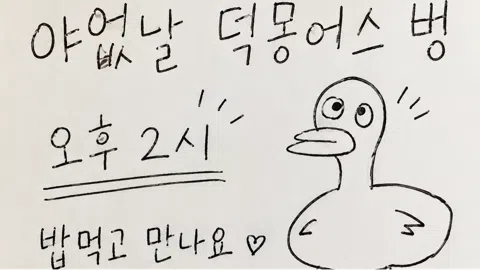 야없날 덕몽어스 벙
오후 2시
밥먹고 만나요♡